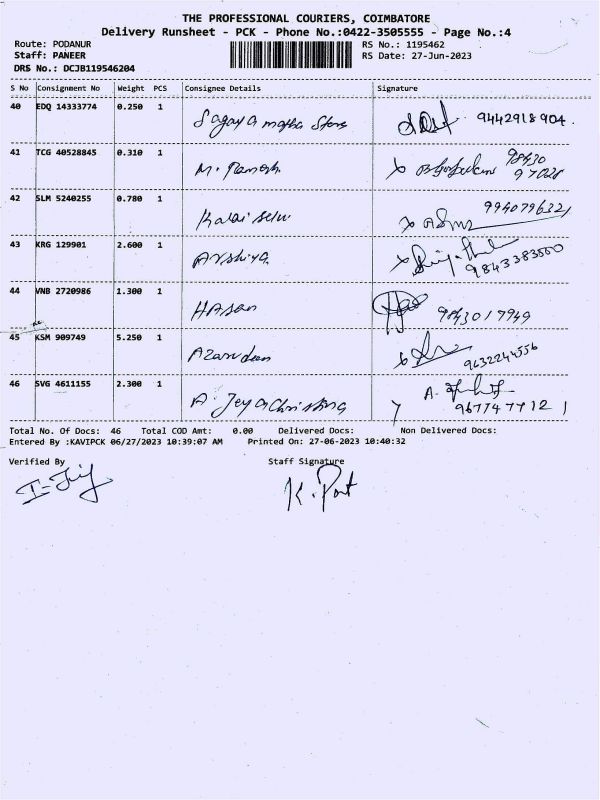 THE PROFESSIONAL COURIERS, COIMBATORE
Delivery Runsheet - PCK - Phone No.:0422-3505555 - Page No.:4
Route: PODANUR RS No.: 1195462
Staff: PANEER RS Date: 27-Jun-2023
DRS No.: DCJB119546204
S No Consignment No Weight PCS Consignee Details Signature
40 EDQ 14333774 0.250 1 Sagaya matha Store 9442918904
41 TCG 40528845 0.310 1 M. Ramesh 98430
97028
42 SLM 5240255 0.780 1 Kalai selvi 9940796321
43 KRG 129901 2.600 1 Arshiya 9843383550
44 VNB 2720986 1.300 1 HAsan 9843017949
45 KSM 909749 5.250 1 Azarudeen 9632244556
46 SVG 4611155 2.300 1 A. Jeya Christina A.
9677477121
Total No. Of Docs: 46 Total COD Amt: 0.00 Delivered Docs: Non Delivered Docs:
Entered By :KAVIPCK 06/27/2023 10:39:07 AM Printed On: 27-06-2023 10:40:32
Verified By Staff Signature